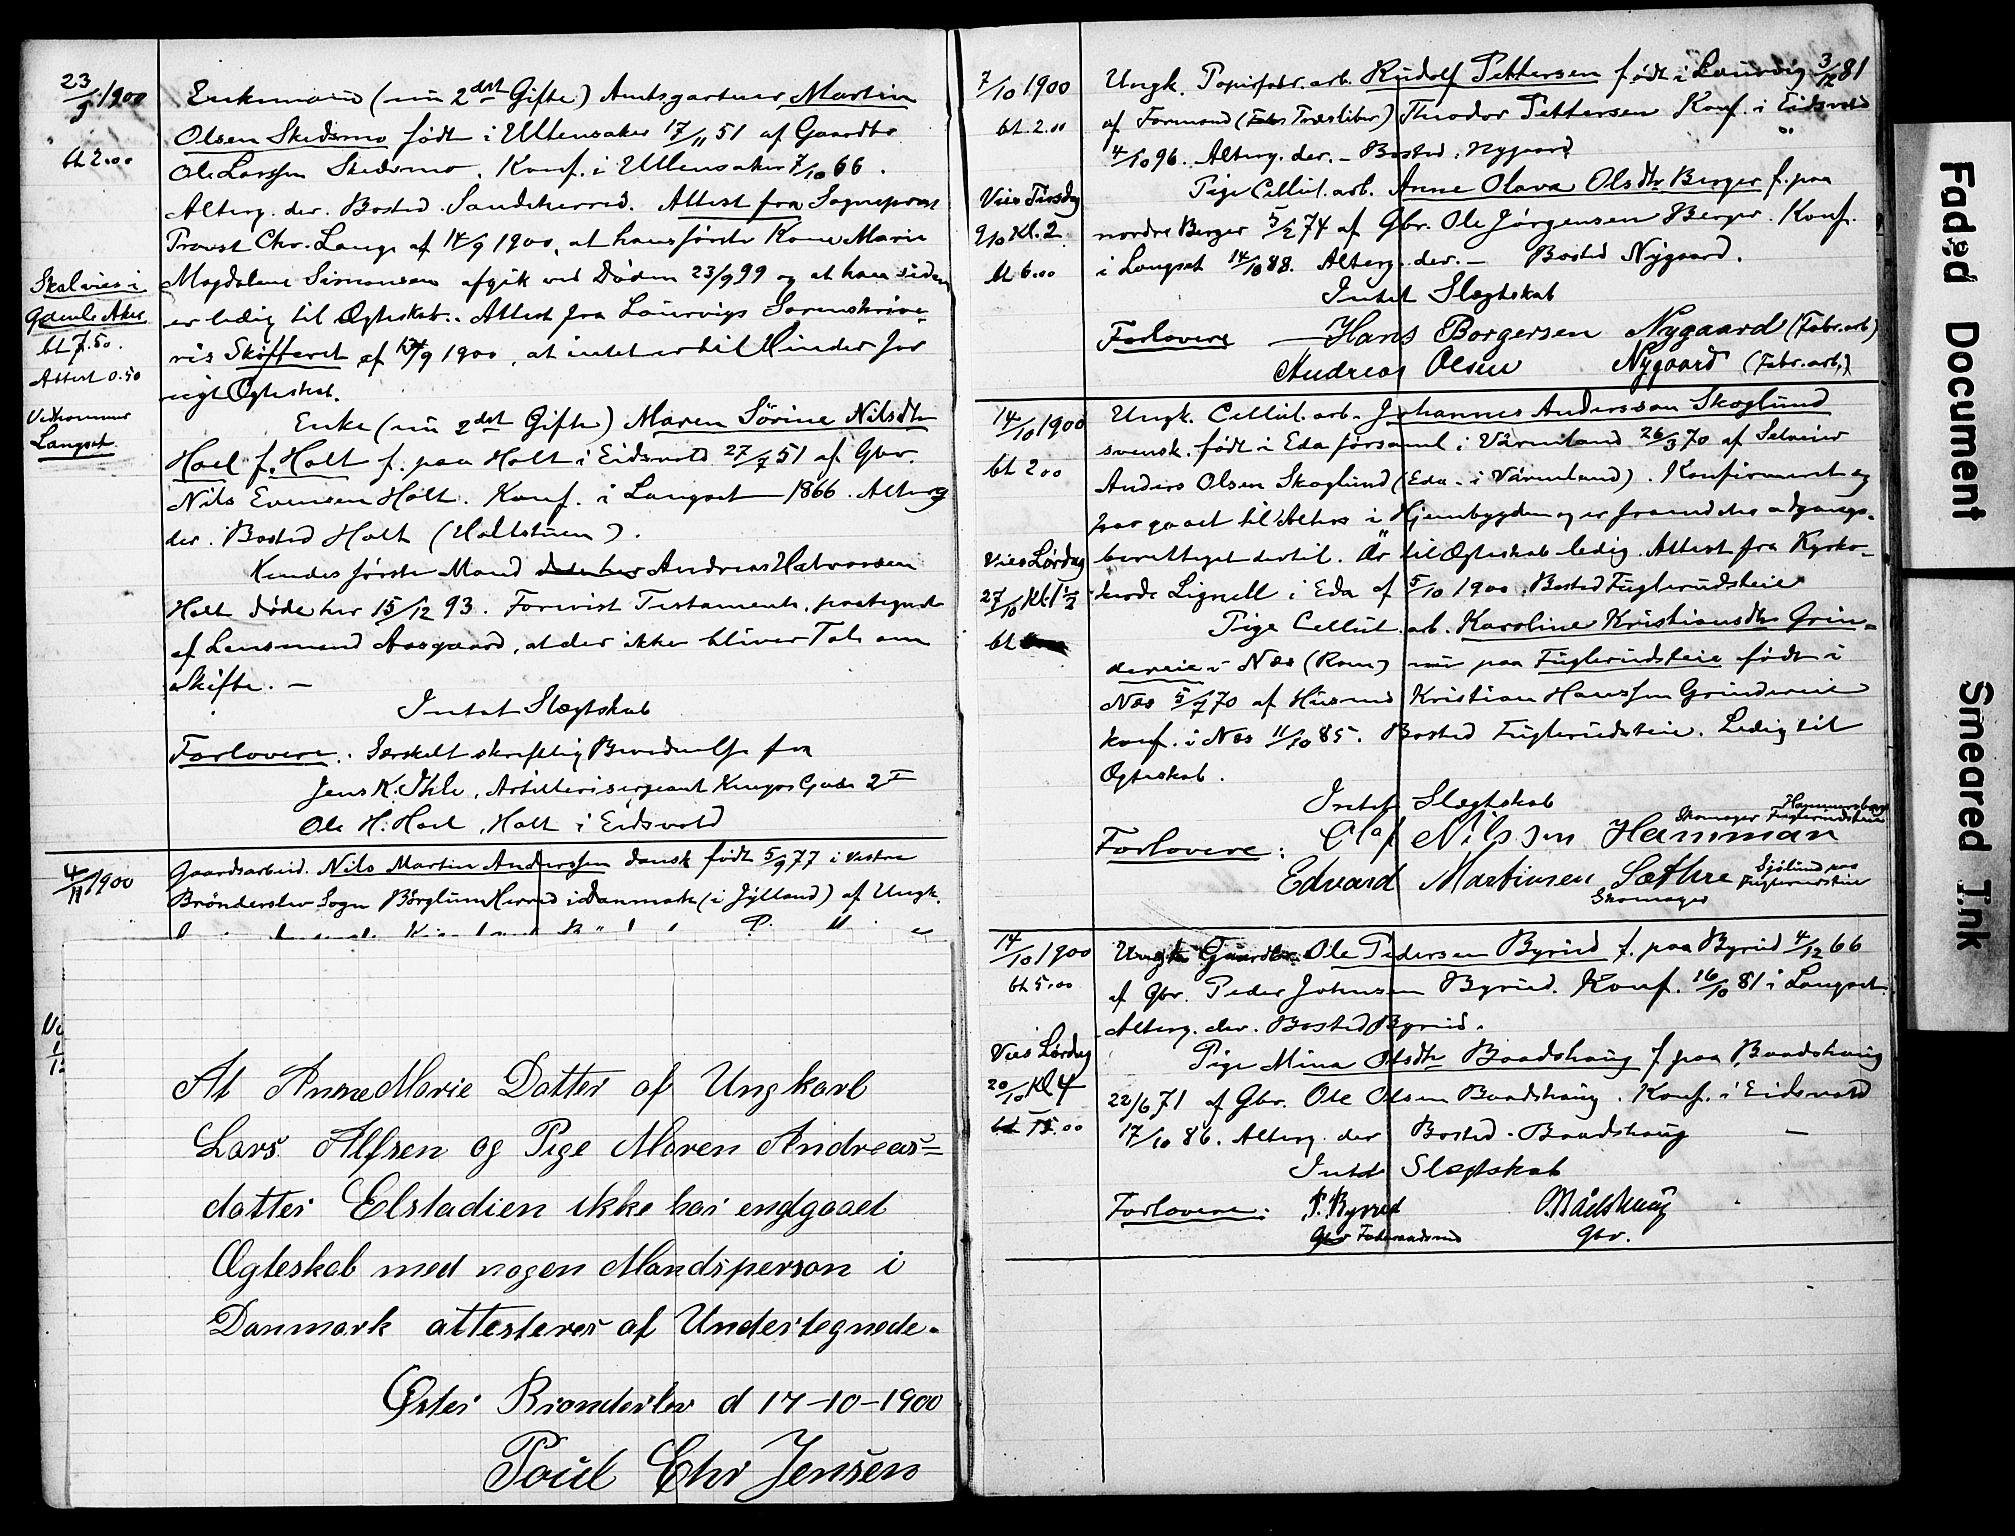 23/9 1900
bt 2.00
Skal vies i
Gamle Aker
bt 7.50.
Attest 0.50
Vedkommer
Langset
Enkemand (nu 2det Gifte) Amtsgartner Martin
Olsen Skedsmo født i Ullensaker 17/11 51 af Gaardbr
Ole Larssen Skedsmo. Konf. i Ullensaker 7/10 66.
Alterg. der. Bosted Sandeherred. Attest fra Sogneprest
Provst Chr. Lange af 14/9 1900, at hans første Kone Marie
Magdalene Simonsen afgik ved Døden 23/9 99 og at han siden
er ledig til Ægteskab. Attest fra Laurvigs Sorenskrive-
ris Skifteret af 1900, at intet er til Hinder for
nygt Ægteskab.
Enke (nu 2det Gifte) Maren Sørine Nilsdtr
Hoel f. Holt f. paa Holt i Eidsvold 27/7 51 af Gbr.
Nils Evensen Holt. Konf. i Langset 1866. Alterg
der. Bosted Holt (Holtstuen).
Hendes første Mand Andreas Halvorsen
Holt døde her 15/12 93. Forevist Testamente, paategnet
af Lensmand Aasgaard, at der ikke bliver Tale om
Skifte. —
Intet Slægtskab
Forlovere. Særskilt skriftlig Bevidnelse fra
Jens K. Ihle, Artillerisergeant Kingos Gade 2 I
Ole H. Hoel, Holt i Eidsvold
4/11 1900
Gaardsarbeid. Nils Martin Anderssen dansk født 5/9 77 i vestre
Brønderslev Sogn Børglum Herred i Danmark (i Jylland) af Ungk.
At Anne Marie Datter af Ungkarl
Lars Alfsen og Pige Maren Andreas=
datter Elstadien ikke har endgaaet
Ægteskab med nogen Mandsperson i
Danmark attesteres af Undertegnede.
Øster Brønderslev d 17-10-1900
Poul Chr Jensen
7/10 1900
bt. 2.00
Vies Tirsdag
9/10 Kl. 2
bt 6.00
Ungk. Papirfabr. arb. Rudolf Pettersen født i Laurvig 3/12 81
af Formand (Træsliber) Theodor Pettersen Konf. i Eidsvold
4/10 96. Alterg. der. – Bosted. Nygaard
Pige Cellul. arb. Anne Olava Olsdtr Berger f. paa
nordre Berger 5/2 74 af Gbr. Ole Jørgensen Berger. Konf.
i Langset 14/10 88. Alterg. der. – Bosted Nygaard.
Intet Slægtskab
Forlovere — Hans Borgersen Nygaard (Fabr. arb)
Andreas Olsen Nygaard (Fabr. arb.)
14/10 1900
bt 2.00
Vies Lørdag
27/10 Kl. 1 1/2
bt
Ungk. Cellul. arb. Johannes Andersson Skoglund
svensk. født i Eda församl. i Värmland 26/3 70 af Selveier
Anders Olsen Skoglund (Eda i Värmland). Konfirmeret og
har gaaet til Alters i Hjembygden og er fremdeles adgangs-
berettiget dertil. Är til Ægteskab ledig. Attest fra Kyrko-
herde Lignell i Eda af 5/10 1900. Bosted Fuglerudseie
Pige Cellul. arb. Karoline Kristiansdtr Grin-
dereie i Næs (Rom) nu paa Fuglerudseie født i
Næs 5/7 70 af Husmd Kristian Hanssen Grindereie
Konf. i Næs 11/10 85. Bosted Fuglerudseie. Ledig til
Ægteskab.
Intet Slægtskab
Forlovere: Olaf Nilsson Hamman Skomager Hammersberg Fuglerudseie
Edvard Martinsen Sæthre Skomager Sjølund paa Fuglerudseie
14/10 1900
bt 5.00
Vies Lørdag
20/10 Kl 4
bt 15.00
Ungk Gaardbr. Ole Pedersen Byrud f. paa Byrud 4/12 66
af Gbr. Peder Johnsen Byrud. Konf. 16/10 81 i Langset.
Alterg. der. Bosted Byrud.
Pige Mina Olsdtr Baadshaug f. paa Baadshaug
22/6 71 af Gbr. Ole Olsen Baadshaug. Konf. i Eidsvold
17/10 86. Alterg. der Bosted. Baadshaug –
Intet Slægtskab
Forlovere: P. Byrud O. Bådshaug
Gbr. Gbr.
Faded Document
Smeared Ink